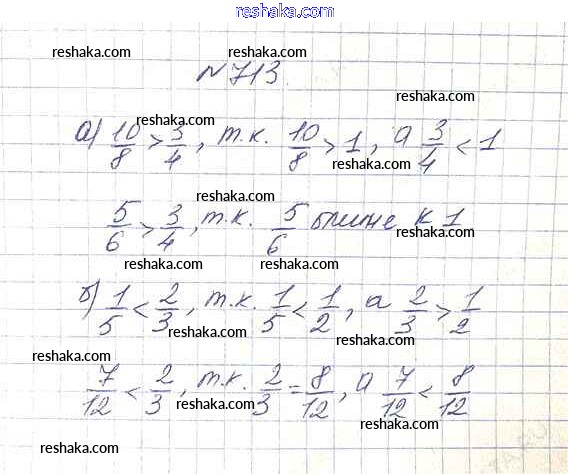 reshaka.com
reshaka.com reshaka.com
N 713.
reshaka.com
а) 10/8 > 3/4, т.к. 10/8 > 1, а 3/4 < 1
reshaka.com
reshaka.com
5/6 > 3/4, т.к. 5/6 ближе к 1
reshaka.com
reshaka.com reshaka.com
reshaka.com
б) 1/5 < 2/3, т.к. 1/5 < 1/2, а 2/3 > 1/2
reshaka.com reshaka.com
reshaka.com
7/12 < 2/3, т.к. 2/3 = 8/12, а 7/12 < 8/12
reshaka.com reshaka.com
reshaka.com reshaka.com